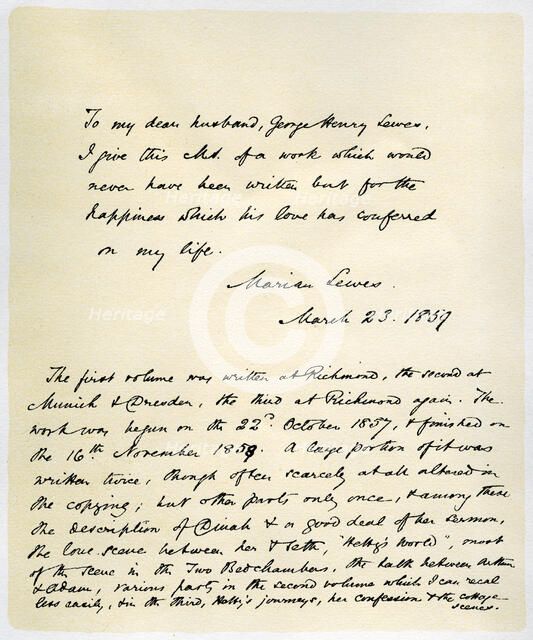 To my dear husband, George Henry Lewes,
I give this M.S. of a work which would
never have been written but for the
happiness which his love has conferred
on my life.
Marian Lewes.
March 23. 1859
The first volume was written at Richmond, the second at
Munich & Dresden, the third at Richmond again. The
work was begun on the 22d. October 1857, & finished on
the 16th November 1858. A large portion of it was
written twice, though often scarcely at all altered in
the copying; but other parts only once, & among these
the description of Dinah & a good deal of her sermon,
the love scene between her & Seth, "Hetty's World", most
of the scene in the Two Bedchambers, the talk between Arthur
& Adam, various parts in the second volume which I can recal
less easily, & in the third, Hetty's journeys, her confession & the cottage
scenes.
Heritage
Heritage
Heritage
Heritage
©